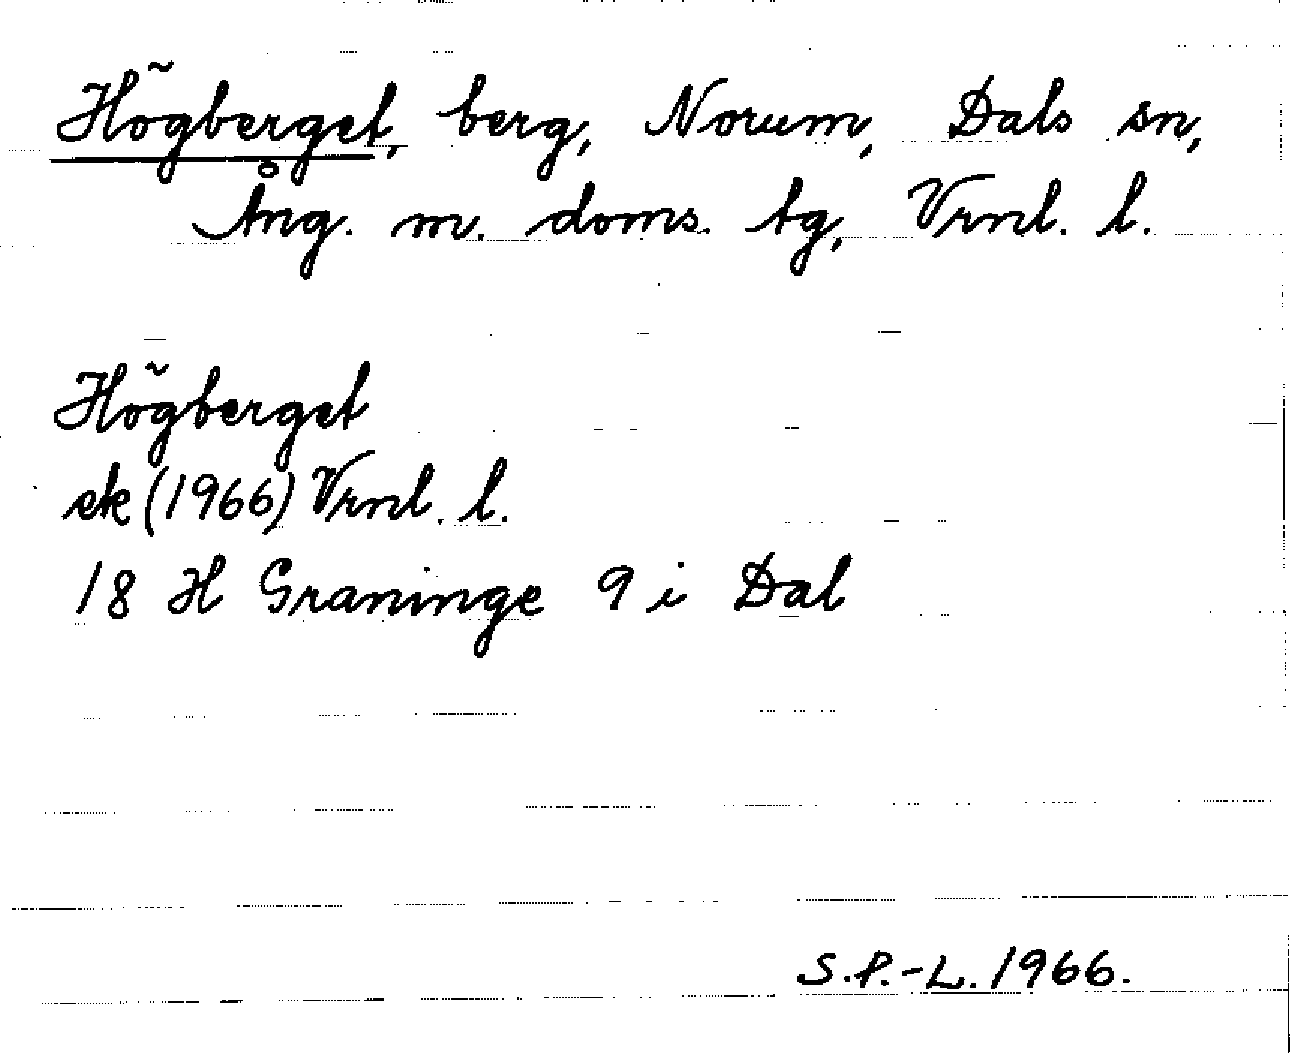 Högberget, berg, Norum, Dals sn,
Ång. m. doms. tg, Vrnl. l.
Högberget
ek (1966) Vrnl. l.
18 H Graninge 9 i Dal
S.P.-L. 1966.